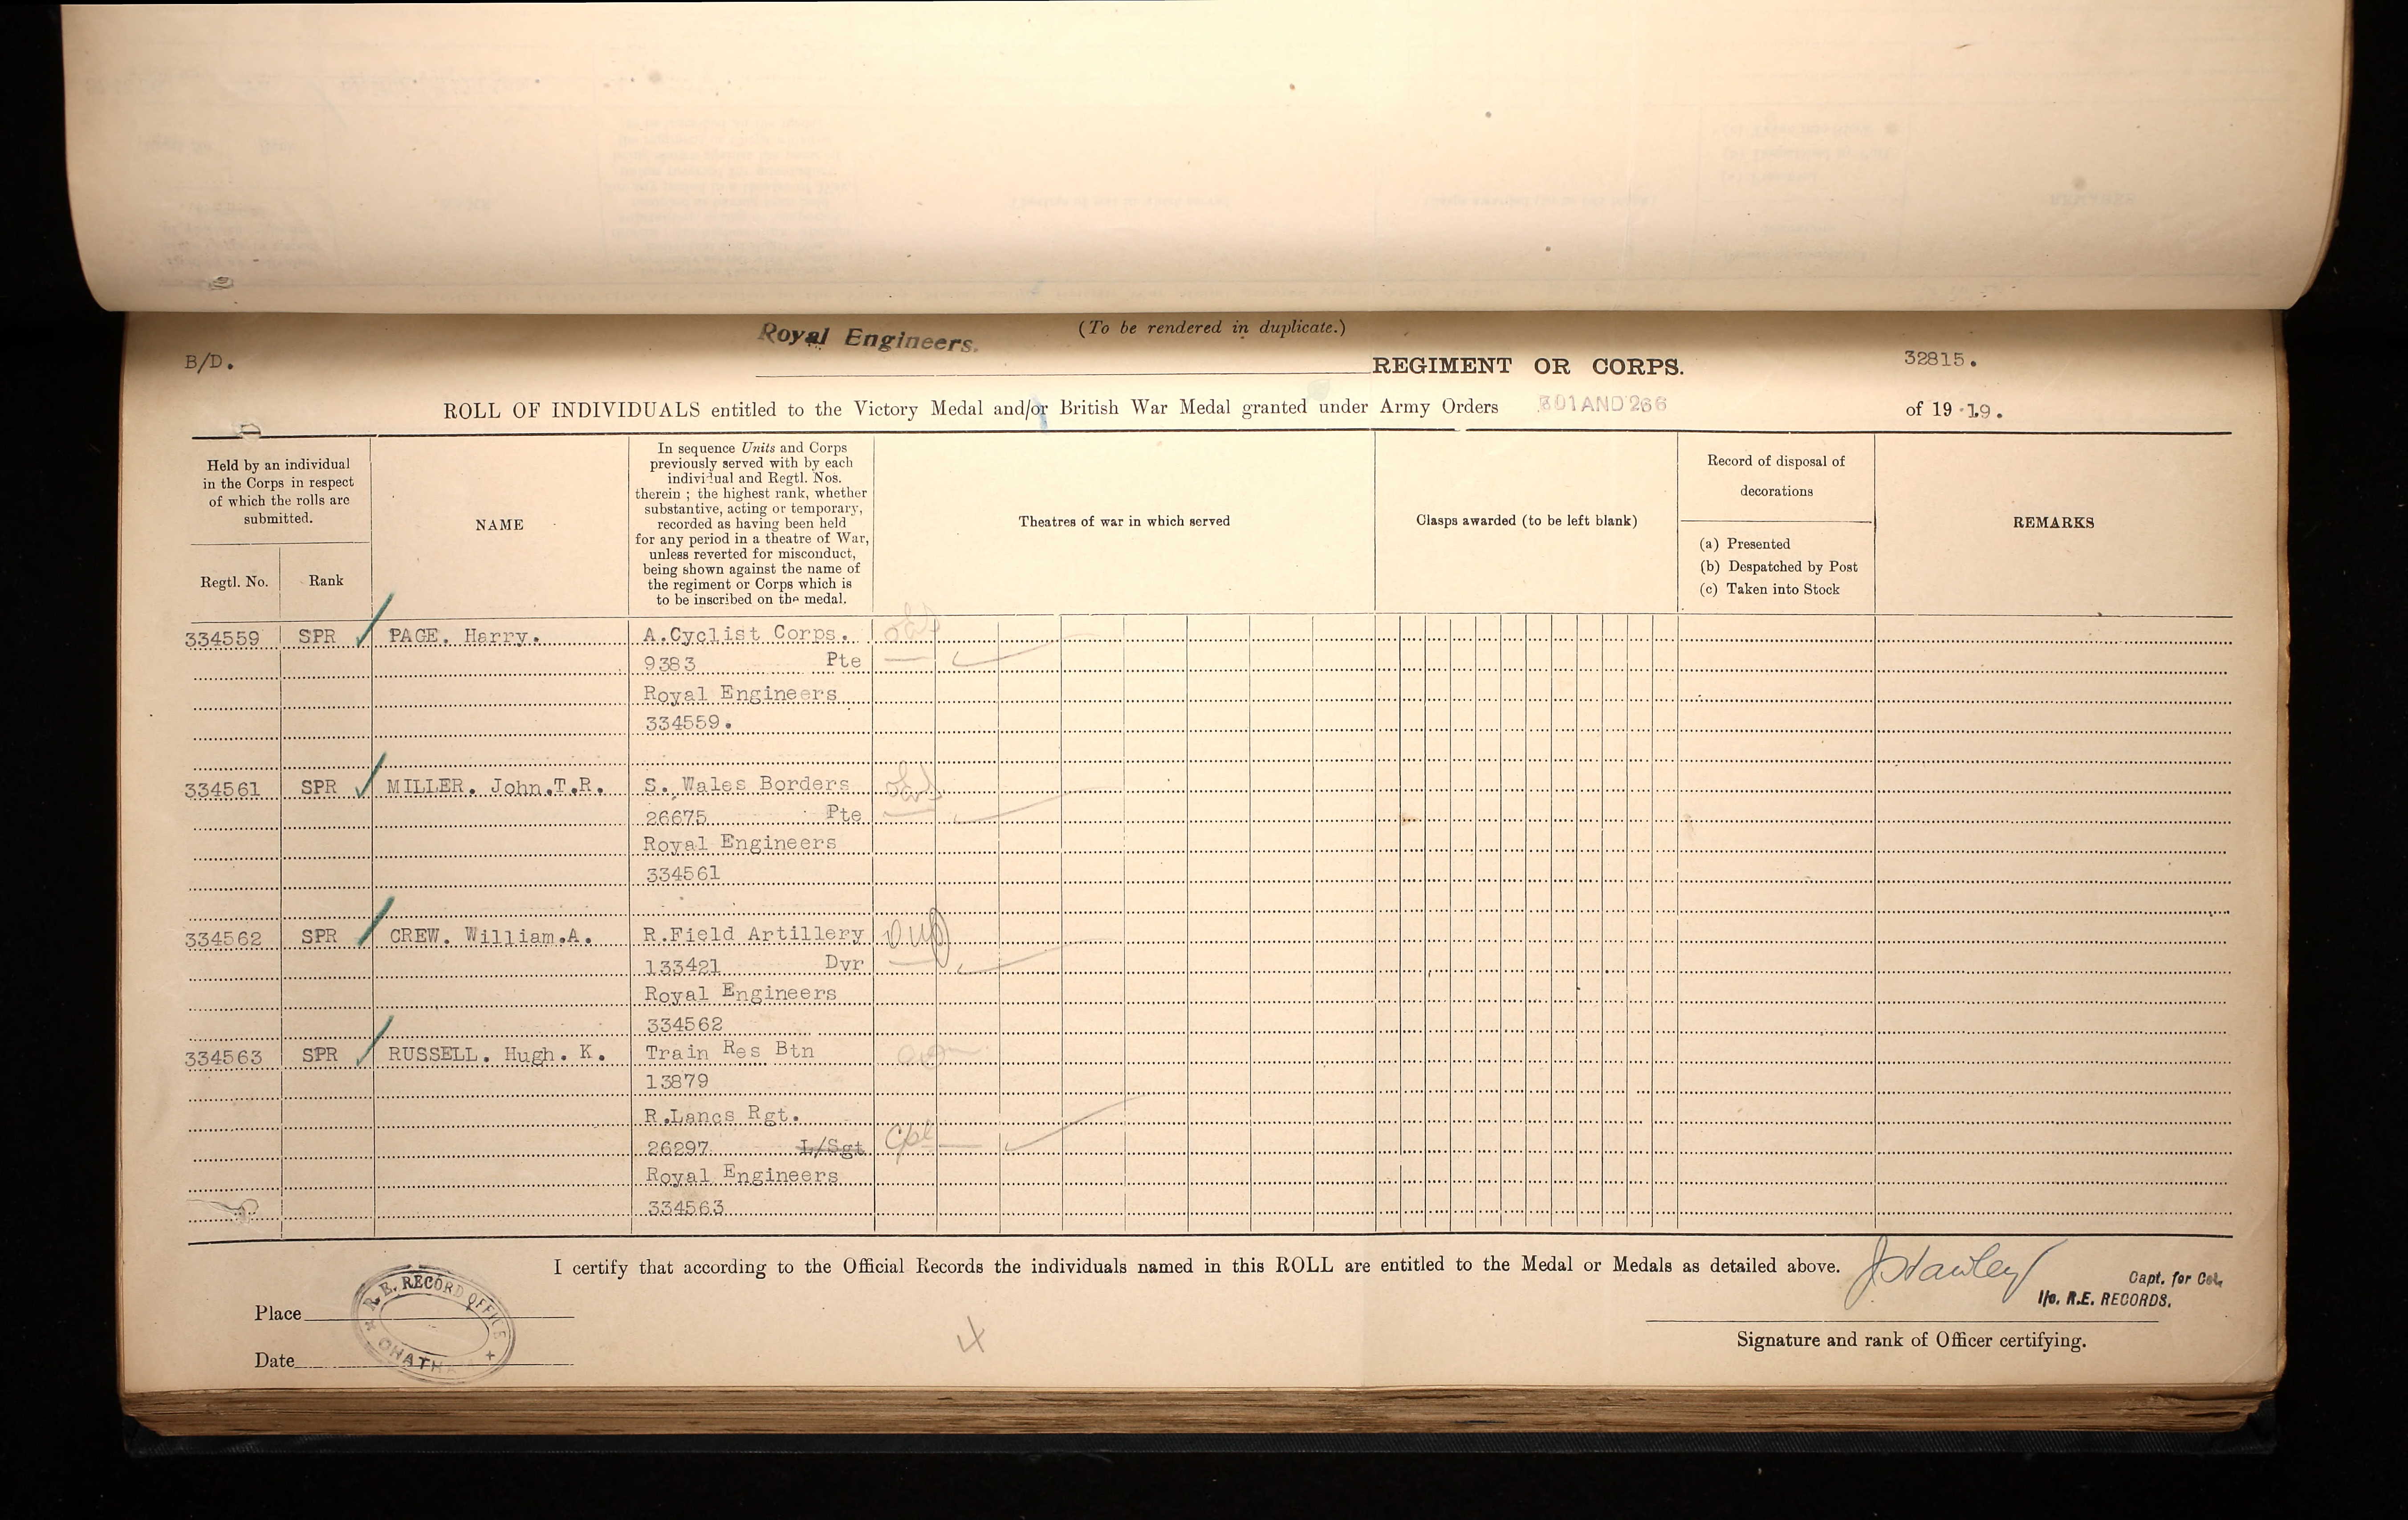 Royal Engineers.
(To be rendered in duplicate.)
B/D.
REGIMENT OR CORPS.
32815.
ROLL OF INDIVIDUALS entitled to the Victory Medal and/or British War Medal granted under Army Orders 301 AND 266 of 19 19.
Held by an individual
in the Corps in respect
of which the rolls are
submitted.
Regtl. No.
Rank
NAME
In sequence Units and Corps
previously served with by each
individual and Regtl. Nos.
therein ; the highest rank, whether
substantive, acting or temporary,
recorded as having been held
for any period in a theatre of War,
unless reverted for misconduct,
being shown against the name of
the regiment or Corps which is
to be inscribed on the medal.
Theatres of war in which served
Clasps awarded (to be left blank)
Record of disposal of
decorations
(a) Presented
(b) Despatched by Post
(c) Taken into Stock
REMARKS
334559 SPR PAGE. Harry. A.Cyclist Corps.
9383 Pte
Royal Engineers
334559.
334561 SPR MILLER. John.T.R. S. Wales Borders
26675 Pte
Royal Engineers
334561
334562 SPR CREW. William.A. R.Field Artillery
133421 Dvr
Royal Engineers
334562
334563 SPR RUSSELL. Hugh. K. Train Res Btn
13879
R.Lancs Rgt.
26297 L/Sgt Cpl
Royal Engineers
334563
I certify that according to the Official Records the individuals named in this ROLL are entitled to the Medal or Medals as detailed above.
Capt. for Col.
I/o. R.E. RECORDS.
Signature and rank of Officer certifying.
Place
Date
R.E. RECORD OFFICE
4